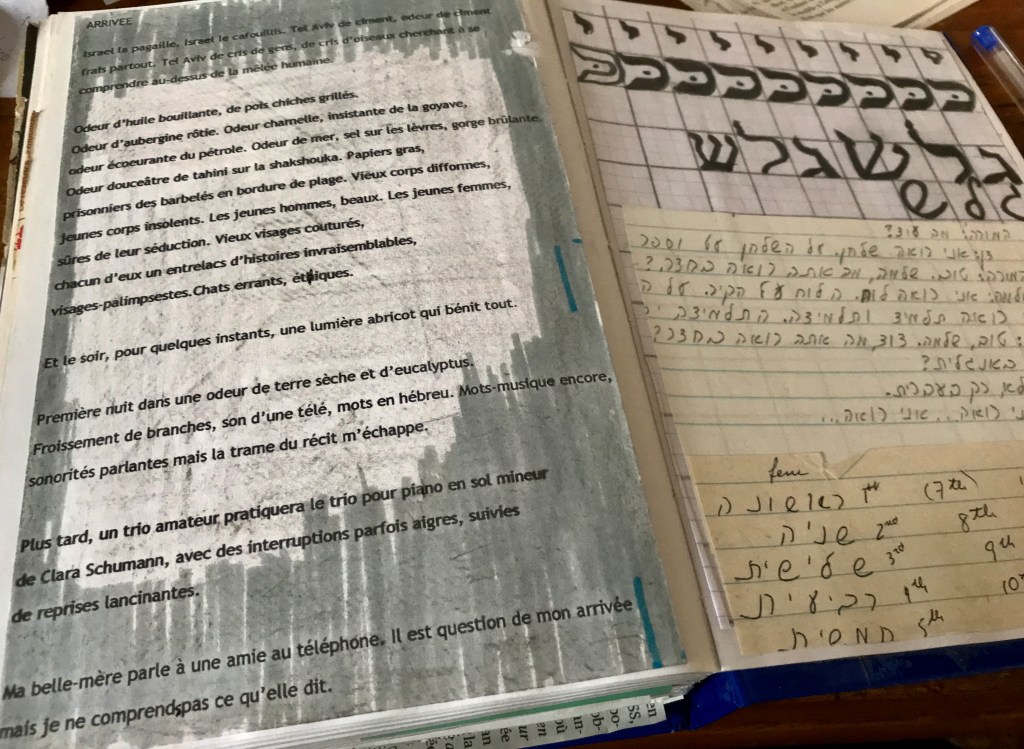 ARRIVEE
Israel la pagaille, Israel le cafouillis. Tel Aviv de ciment, odeur de ciment
frais partout. Tel Aviv de cris de gens, de cris d'oiseaux cherchant à se
comprendre au-dessus de la mêlée humaine.
Odeur d'huile bouillante, de pois chiches grillés.
Odeur d'aubergine rôtie. Odeur charnelle, insistante de la goyave,
odeur écoeurante du pétrole. Odeur de mer, sel sur les lèvres, gorge brûlante.
Odeur douceâtre de tahini sur la shakshouka. Papiers gras,
prisonniers des barbelés en bordure de plage. Vieux corps difformes,
jeunes corps insolents. Les jeunes hommes, beaux. Les jeunes femmes,
sûres de leur séduction. Vieux visages couturés,
chacun d'eux un entrelacs d'histoires invraisemblables,
visages-palimpsestes. Chats errants, étiques.
Et le soir, pour quelques instants, une lumière abricot qui bénit tout.
Première nuit dans une odeur de terre sèche et d'eucalyptus.
Froissement de branches, son d'une télé, mots en hébreu. Mots-musique encore,
sonorités parlantes mais la trame du récit m'échappe.
Plus tard, un trio amateur pratiquera le trio pour piano en sol mineur
de Clara Schumann, avec des interruptions parfois aigres, suivies
de reprises lancinantes.
Ma belle-mère parle à une amie au téléphone. Il est question de mon arrivée
mais je ne comprends pas ce qu'elle dit.
גלשגלש
גלש
המורה: מה עוד?
אני רואה שלחן. על השלחן יש
המורה: טוב. שלמה, מה אתה רואה בחדר?
שלמה: אני רואה לוח. הלוח על הקיר. על ה
רואה תלמיד ותלמידה. התלמידה
טוב, שלמה. דוד, מה אתה רואה בחדר?
באנגלית?
לא רק בעברית.
אני רואה... אני רואה...
fem
ראשונה 1st (7th)
שניה 2nd 8th
שלישית 3rd 9th
רביעית 4th
חמסית 5th